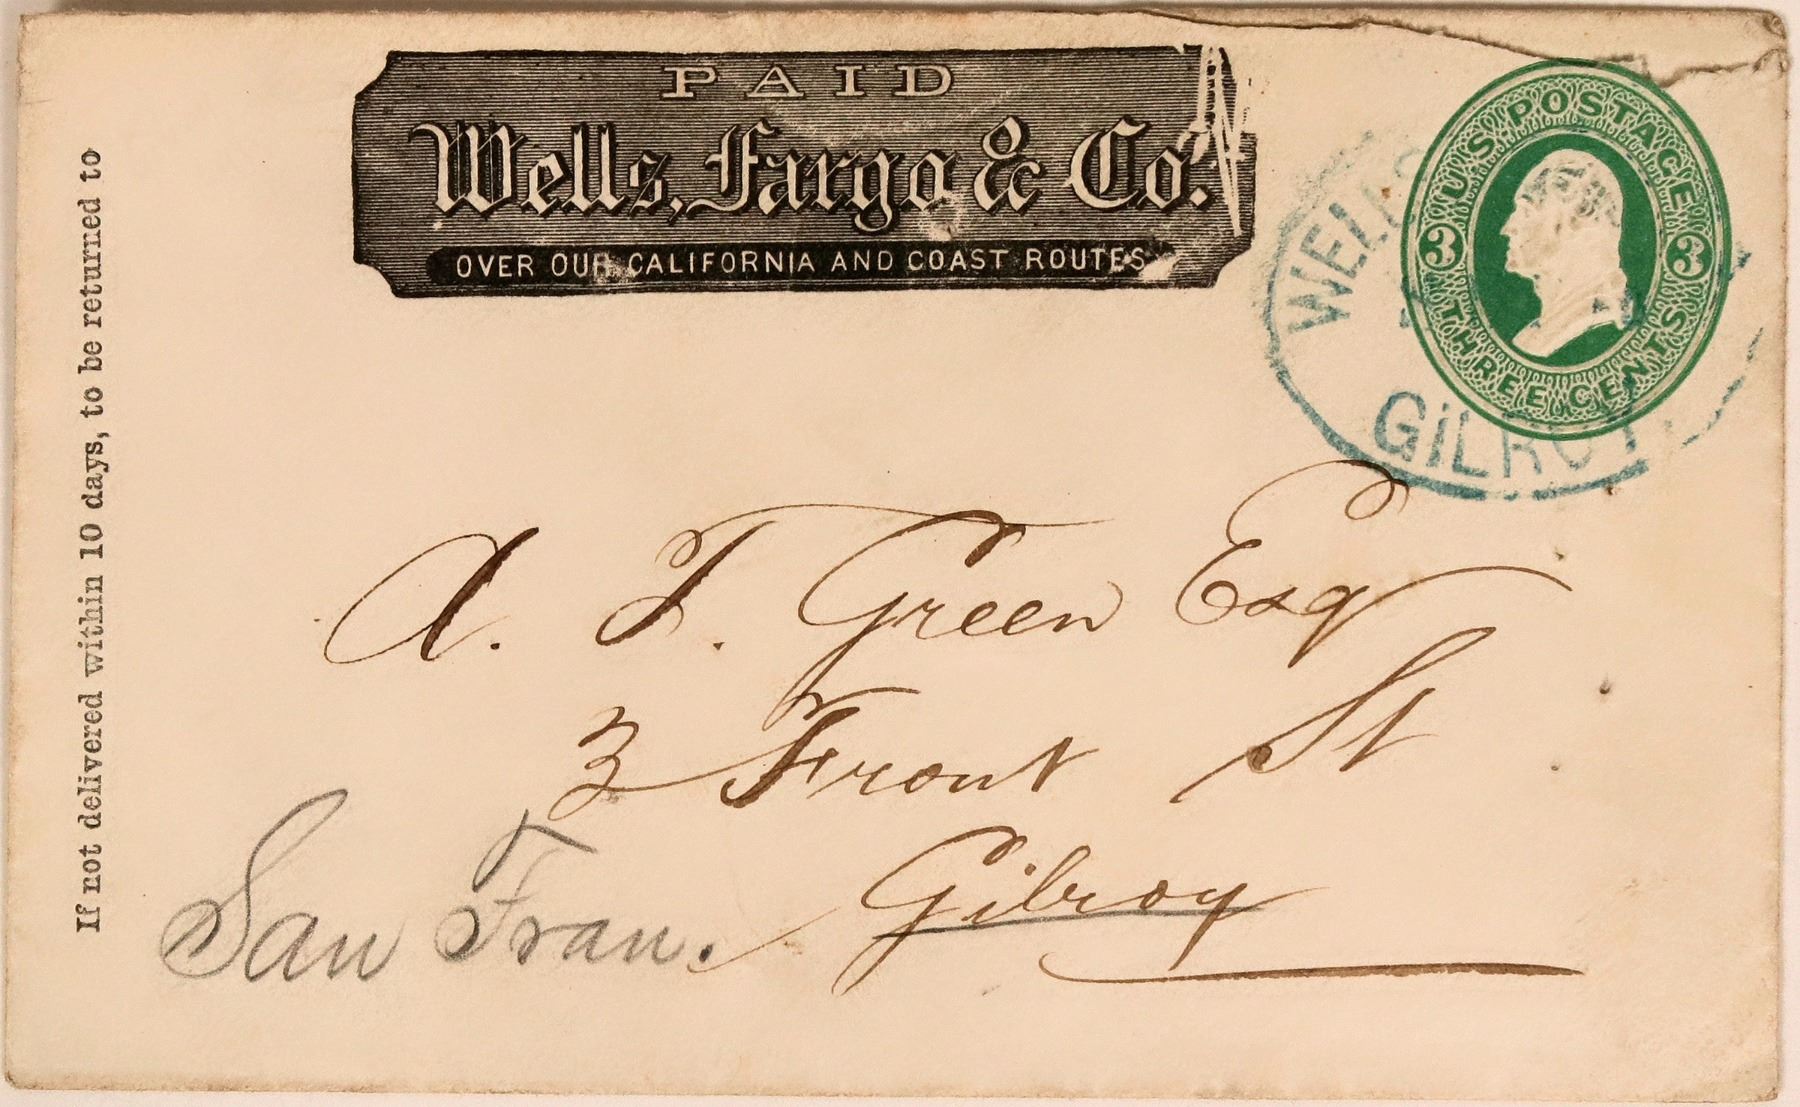 PAID
Wells, Fargo & Co.
OVER OUR CALIFORNIA AND COAST ROUTES
U.S. POSTAGE
3 3
THREE CENTS
WELLS
GiLROY
If not delivered within 10 days, to be returned to
A. T. Green Esq
3 Front St
Gilroy
San Fran.